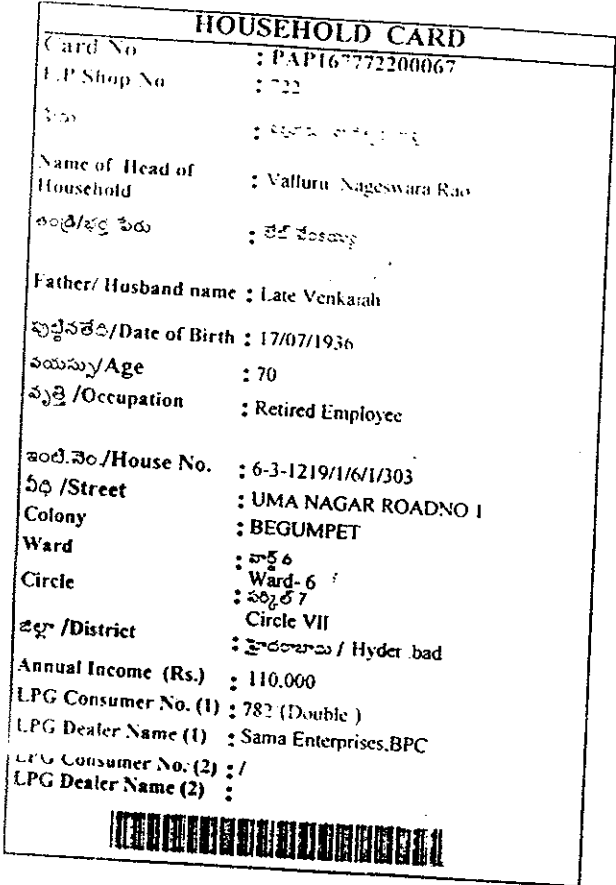 HOUSEHOLD CARD
Card No : PAP167772200067
F.P Shop No : 722
పేరు :
Name of Head of Household : Valluru Nageswara Rao
తండ్రి/భర్త పేరు : లేట్ వెంకయ్య
Father/ Husband name : Late Venkaiah
పుట్టినతేది/Date of Birth : 17/07/1936
వయస్సు/Age : 70
వృత్తి /Occupation : Retired Employee
ఇంటి.నెం./House No. : 6-3-1219/1/6/1/303
వీధి /Street : UMA NAGAR ROADNO 1
Colony : BEGUMPET
Ward : వార్డ్ 6
Ward- 6
Circle : సర్కిల్ 7
Circle VII
జిల్లా /District : హైదరాబాదు / Hyder bad
Annual Income (Rs.) : 110,000
LPG Consumer No. (1) : 782 (Double )
LPG Dealer Name (1) : Sama Enterprises,BPC
LPG Consumer No. (2) : /
LPG Dealer Name (2) :